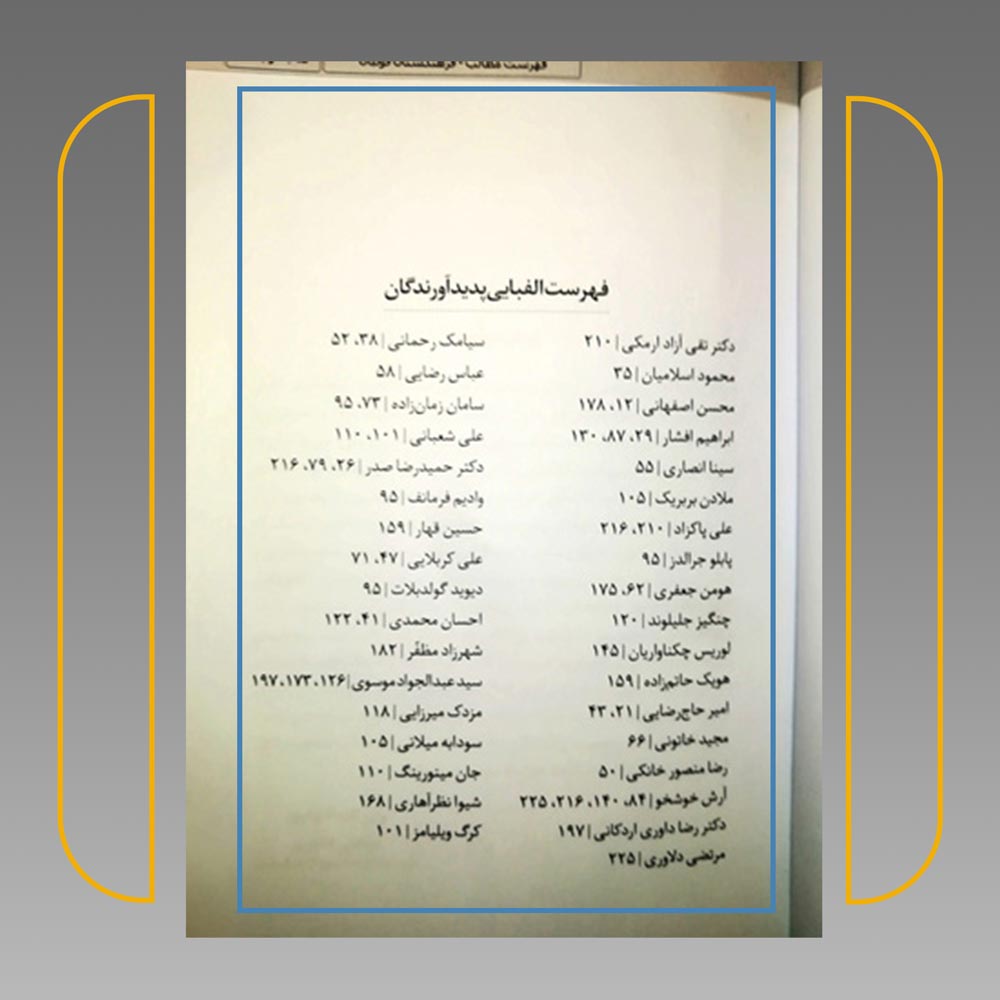 فهرست مطالب
فهرست الفبایی پدیدآورندگان
دکتر تقی آزاد ارمکی | ۲۱۰
محمود اسلامیان | ۳۵
محسن اصفهانی | ۱۲، ۱۷۸
ابراهیم افشار | ۲۹، ۸۷، ۱۳۰
سینا انصاری | ۵۵
ملادن بربریک | ۱۰۵
علی پاکزاد | ۲۱۰، ۲۱۶
پابلو جرالدز | ۹۵
هومن جعفری | ۶۲، ۱۷۵
چنگیز جلیلوند | ۱۲۰
لوریس چکناواریان | ۱۴۵
هویک حاتم‌زاده | ۱۵۹
امیر حاج‌رضایی | ۲۱، ۴۳
مجید خاتونی | ۶۶
رضا منصور خانکی | ۵۰
آرش خوشخو | ۸۴، ۱۴۰، ۲۱۶، ۲۲۵
دکتر رضا داوری اردکانی | ۱۹۷
مرتضی دلاوری | ۲۲۵
سیامک رحمانی | ۳۸، ۵۲
عباس رضایی | ۵۸
سامان زمان‌زاده | ۷۳، ۹۵
علی شعبانی | ۱۰۱، ۱۱۰
دکتر حمیدرضا صدر | ۲۶، ۷۹، ۲۱۶
وادیم فرمانف | ۹۵
حسین قهار | ۱۵۹
علی کربلایی | ۴۷، ۷۱
دیوید گولدبلات | ۹۵
احسان محمدی | ۴۱، ۱۲۲
شهرزاد مظفّر | ۱۸۲
سید عبدالجواد موسوی | ۱۲۶، ۱۷۳، ۱۹۷
مزدک میرزایی | ۱۱۸
سودابه میلانی | ۱۰۵
جان مینورینگ | ۱۱۰
شیوا نظرآهاری | ۱۶۸
کرگ ویلیامز | ۱۰۱